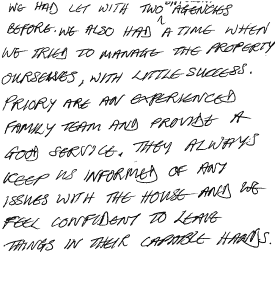 WE HAD LET WITH TWO AGENCIES
BEFORE. WE ALSO HAD A TIME WHEN
WE TRIED TO MANAGE THE PROPERTY
OURSELVES, WITH LITTLE SUCCESS.
PRIORY ARE AN EXPERIENCED
FAMILY TEAM AND PROVIDE A
GOOD SERVICE. THEY ALWAYS
KEEP US INFORMED OF ANY
ISSUES WITH THE HOUSE AND WE
FEEL CONFIDENT TO LEAVE
THINGS IN THEIR CAPABLE HANDS.